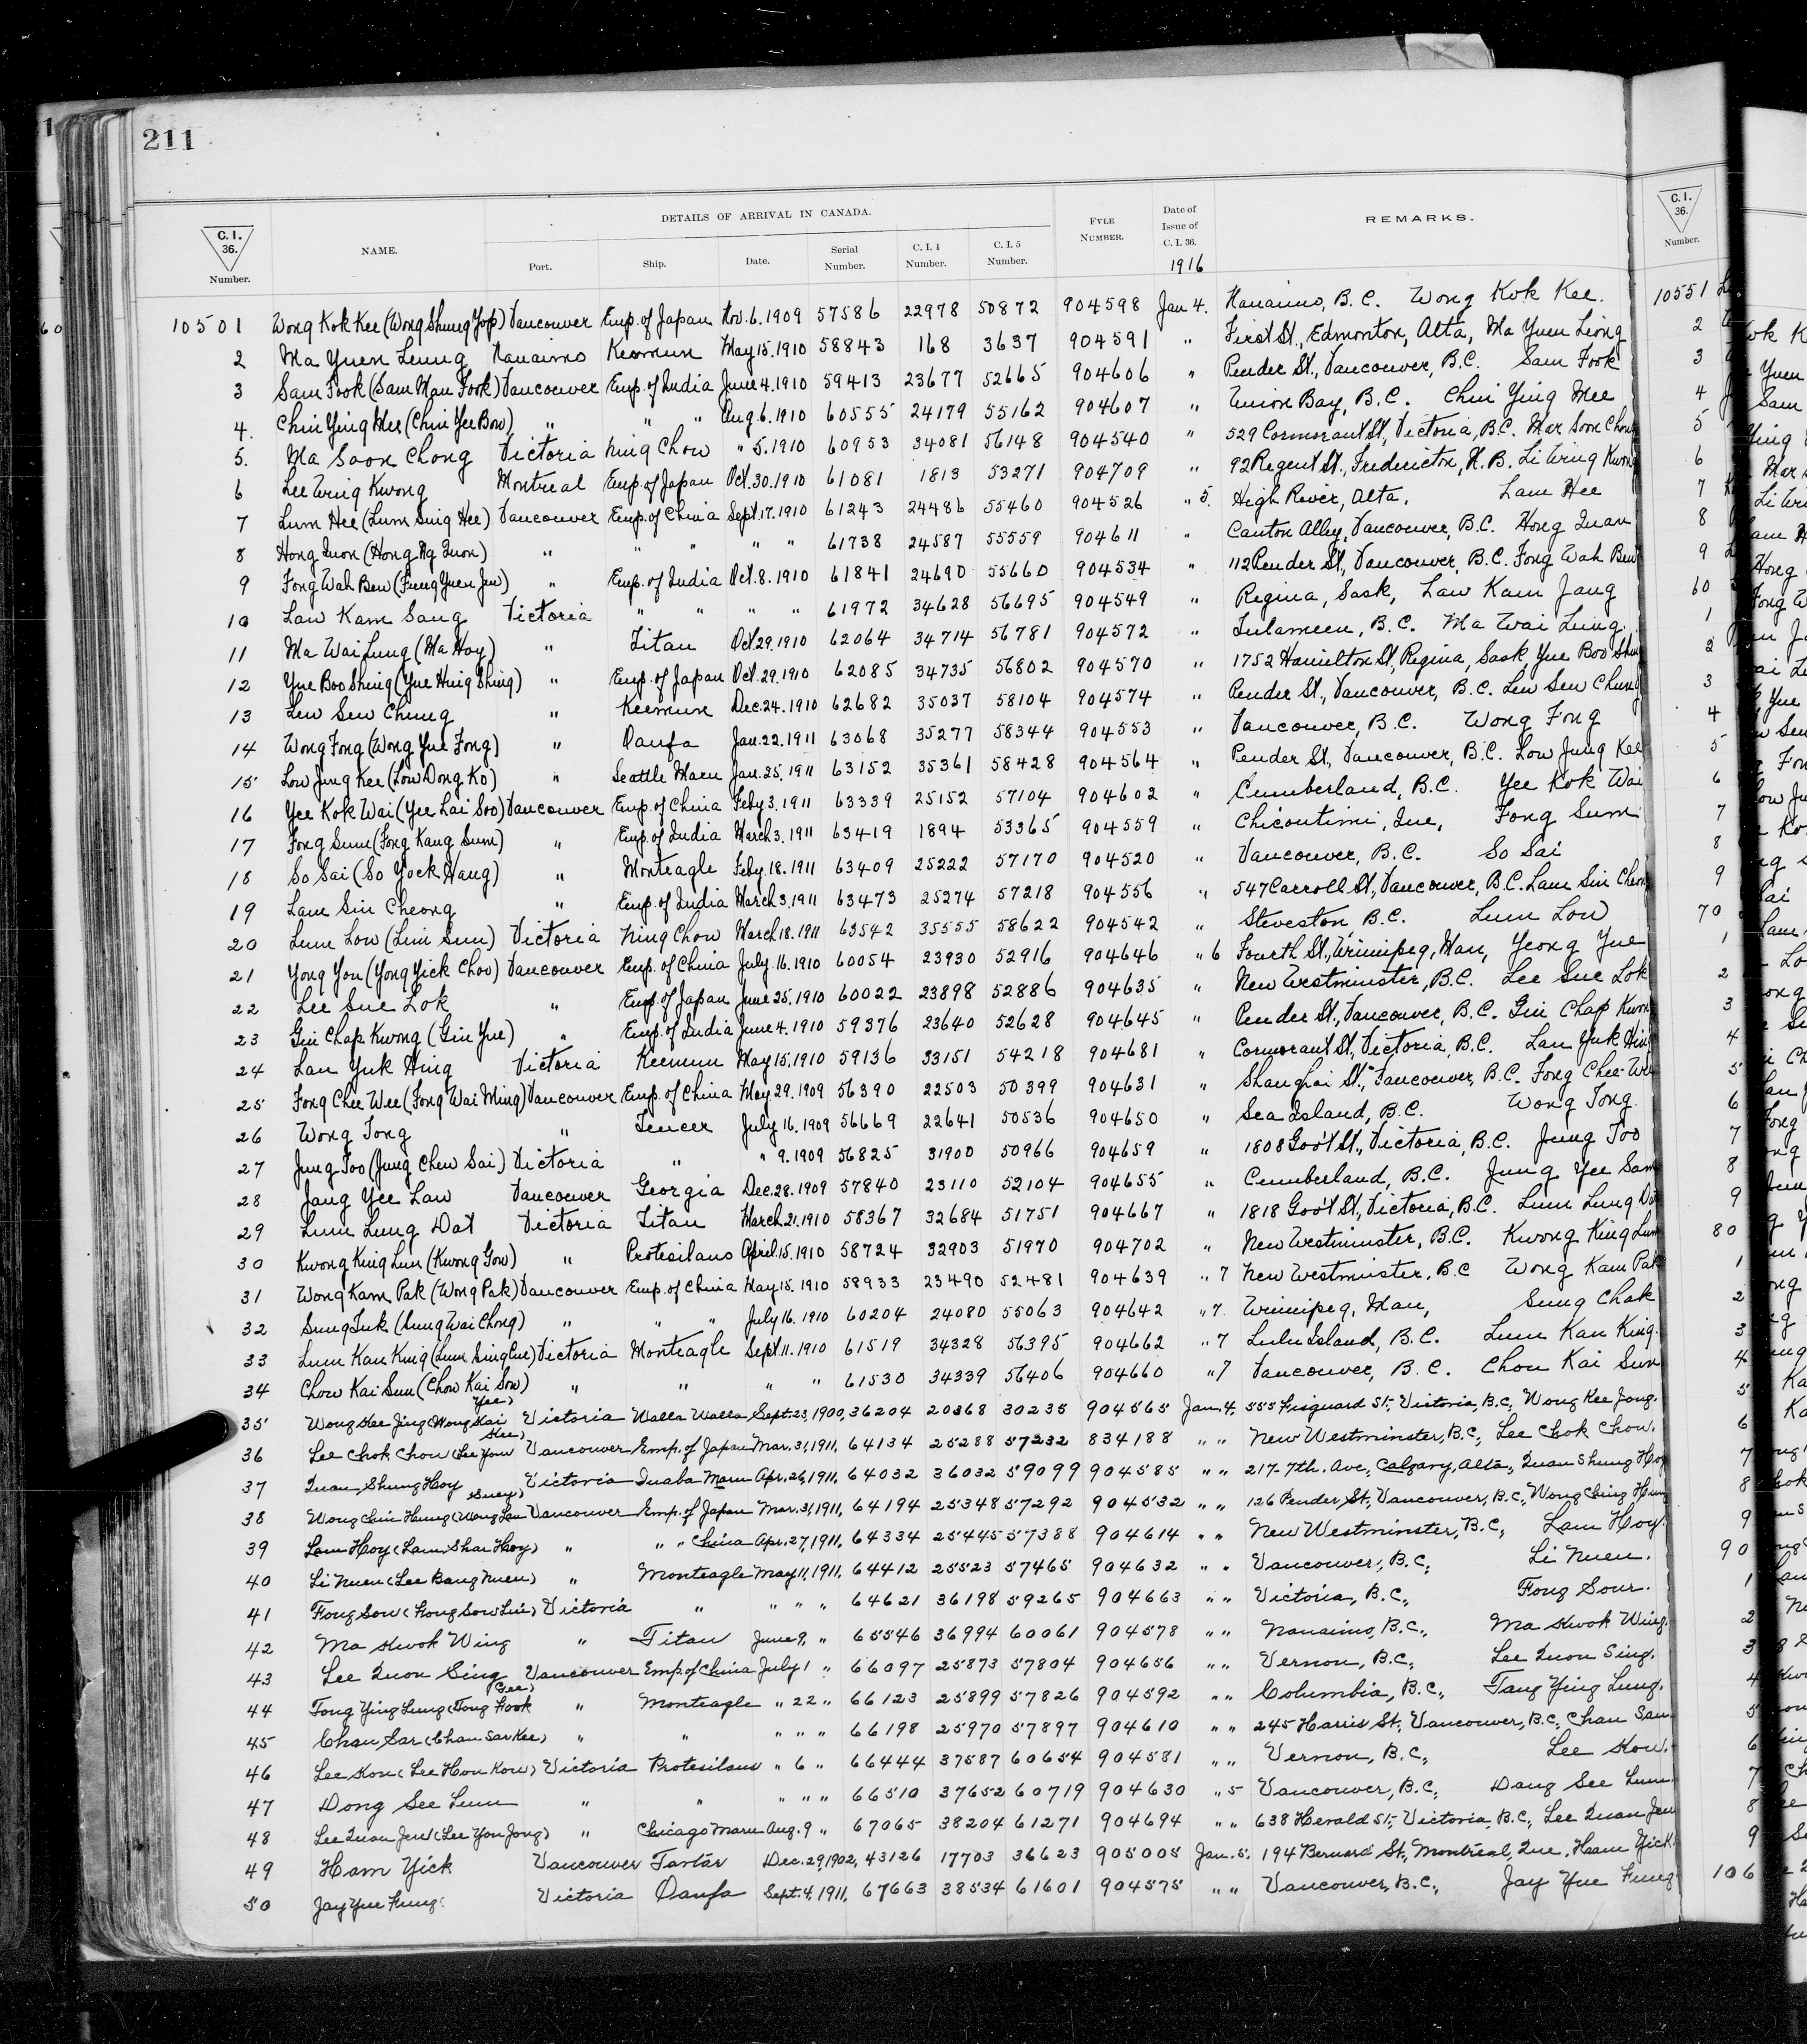 211
DETAILS OF ARRIVAL IN CANADA.
C.I. 36. Number. NAME. Port. Ship. Date. Serial Number. C.I.4 Number. C.I.5 Number. FYLE NUMBER. Date of Issue of C.I.36. 1916 REMARKS. C.I. 36. Number.
10501 Wong Kok Kee (Wong Shung Yop) Vancouver Emp. of Japan Nov. 6. 1909 57586 22978 50872 904598 Jan 4. Nanaimo, B.C. Wong Kok Kee. 10551
2 Ma Yuen Leung Nanaimo Keemun May 15. 1910 58843 168 3637 904591 " First St., Edmonton, Alta, Ma Yuen Liong 2
3 Sam Fook (Sam Man Fook) Vancouver Emp. of India June 4. 1910 59413 23677 52665 904606 " Pender St., Vancouver, B.C. Sam Fook 3
4. Chin Ying Mee (Chin Yee Bow) " " " Aug 6. 1910 60555 24179 55162 904607 " Union Bay, B.C. Chin Ying Mee 4
5. Ma Soon Chong Victoria Ning Chow " 5. 1910 60953 34081 56148 904540 " 529 Cormorant St, Victoria, B.C. Mar Soon Chong 5
6 Lee Wing Kwong Montreal Emp. of Japan Oct. 30. 1910 61081 1813 53271 904709 " 92 Regent St., Fredericton, N.B. Li Wing Kwong 6
7 Lum Hee (Lum Sing Hee) Vancouver Emp. of China Sept. 17. 1910 61243 24486 55460 904526 " 5. High River, Alta. Lam Hee 7
8 Hong Quon (Hong Ng Quon) " " " " " 61738 24587 55559 904611 " Canton Alley, Vancouver, B.C. Hong Quan 8
9 Fong Wah Bew (Fung Yuen Jew) " Emp. of India Oct. 8. 1910 61841 24690 55660 904534 " 112 Pender St., Vancouver, B.C. Fong Wah Bew 9
10 Law Kam Sang Victoria " " " " 61972 34628 56695 904549 " Regina, Sask, Law Kam Jang 60
11 Ma Wai Lung (Ma Hoy) " Titan Oct. 29. 1910 62064 34714 56781 904572 " Tulameen, B.C. Ma Wai Lung. 1
12 Yue Boo Shing (Yue Hing Shing) " Emp. of Japan Oct. 29. 1910 62085 34735 56802 904570 " 1752 Hamilton St, Regina, Sask, Yue Boo Shing 2
13 Lew Sew Chung " Keemun Dec. 24. 1910 62682 35037 58104 904574 " Pender St., Vancouver, B.C. Lew Sew Chung 3
14 Wong Fong (Wong Yue Fong) " Oanfa Jan. 22. 1911 63068 35277 58344 904553 " Vancouver, B.C. Wong Fong 4
15 Low Jung Kee (Low Dong Ko) " Seattle Maru Jan. 25. 1911 63152 35361 58428 904564 " Pender St, Vancouver, B.C. Low Jung Kee 5
16 Yee Kok Wai (Yee Lai Soo) Vancouver Emp. of China Feby 3. 1911 63339 25152 57104 904602 " Cumberland, B.C. Yee Kok Wai 6
17 Fong Sum (Fong Kang Sum) " Emp. of India March 3. 1911 63419 1894 53365 904559 " Chicoutimi, Que, Fong Sum 7
18 So Sai (So Yock Hang) " Monteagle Feby. 18. 1911 63409 25222 57170 904520 " Vancouver, B.C. So Sai 8
19 Lam Sin Cheong " Emp. of India March 3. 1911 63473 25274 57218 904556 " 547 Carroll St., Vancouver, B.C. Lam Sin Cheong 9
20 Lum Low (Lim Sum) Victoria Ning Chow March 18. 1911 63542 35555 58622 904542 " Steveston, B.C. Lum Low 70
21 Yong You (Yong Yick Choo) Vancouver Emp. of China July. 16. 1910 60054 23930 52916 904646 " 6 Fourth St., Winnipeg, Man, Yeong Yue 1
22 Lee Sue Lok " Emp. of Japan June 25. 1910 60022 23898 52886 904635 " New Westminster, B.C. Lee Sue Lok 2
23 Gin Chap Kwong (Gin Yue) " Emp. of India June 4. 1910 59376 23640 52628 904645 " Pender St., Vancouver, B.C. Gin Chap Kwong 3
24 Lau Yuk Hing Victoria Keemun May 15. 1910 59136 33151 54218 904681 " Cormorant St, Victoria, B.C. Lau Yuk Hing 4
25 Fong Chee Wee (Fong Wai Ming) Vancouver Emp. of China May. 29. 1909 56390 22503 50399 904631 " Shanghai St., Vancouver, B.C. Fong Chee Wee 5
26 Wong Tong " Teucer July 16. 1909 56669 22641 50536 904650 " Sea Island, B.C. Wong Tong. 6
27 Jung Too (Jung Chew Sai) Victoria " " 9. 1909 56825 31900 50966 904659 " 1808 Gov't St., Victoria, B.C. Jung Too 7
28 Jang Yee Law Vancouver Georgia Dec. 28. 1909 57840 23110 52104 904655 " Cumberland, B.C. Jung Yee Sam 8
29 Lum Lung Dat Victoria Titan March 21. 1910 58367 32684 51751 904667 " 1818 Gov't St., Victoria, B.C. Lum Lung Dat 9
30 Kwong King Lum (Kwong Gow) " Protesilaus April 15. 1910 58724 32903 51970 904702 " New Westminster, B.C. Kwong King Lum 80
31 Wong Kam Pak (Wong Pak) Vancouver Emp. of China May 15. 1910 58933 23490 52481 904639 " 7 New Westminster, B.C Wong Kam Pak 1
32 Sung Tuk (Sung Wai Chong) " " " July 16. 1910 60204 24080 55063 904642 " 7. Winnipeg, Man, Sung Chak 2
33 Lum Kan King (Lum Sing Cue) Victoria Monteagle Sept. 11. 1910 61519 34328 56395 904662 " 7 Lulu Island, B.C. Lum Kan King. 3
34 Chow Kai Sun (Chow Kai Sow) " " " " 61530 34339 56406 904660 " 7 Vancouver, B.C. Chou Kai Sun 4
35 Wong Kee Jing (Wong Kai Yee) Victoria Walla Walla Sept. 23, 1900, 36204 20368 30235 904565 Jan. 4. 555 Fisguard St., Victoria, B.C., Wong Kee Jong. 5
36 Lee Chok Chow (Lee You Kee) Vancouver Emp. of Japan Mar. 31, 1911, 64134 25288 57232 834188 " " New Westminster, B.C., Lee Chok Chow. 6
37 Quan Shung Hoy Victoria Inaba Maru Apr. 26, 1911, 64032 36032 59099 904585 " " 217-7th. Ave., Calgary, Alta., Quan Shung Hoy 7
38 Wong Chin Hung (Wong Lan Suey) Vancouver Emp. of Japan Mar. 31, 1911, 64194 25348 57292 904532 " " 126 Pender St., Vancouver, B.C., Wong Ching Hung 8
39 Lam Hoy (Lam Shar Hoy) " " " China Apr. 27, 1911, 64334 25445 57388 904614 " " New Westminster, B.C., Lam Hoy. 9
40 Li Nuen (Lee Bang Nuen) " Monteagle May 11, 1911, 64412 25523 57465 904632 " " Vancouver, B.C., Li Nuen. 90
41 Fong Sow (Fong Sow Lin) Victoria " " " " 64621 36198 59265 904663 " " Victoria, B.C., Fong Sour. 1
42 Ma Kwok Wing " Titan June 9, " 65546 36994 60061 904578 " " Nanaimo, B.C., Ma Kwok Wing. 2
43 Lee Quon Sing Vancouver Emp. of China July 1 " 66097 25873 57804 904656 " " Vernon, B.C., Lee Quon Sing. 3
44 Tong Ying Lung (Tong Fook Gee) " Monteagle " 22 " 66123 25899 57826 904592 " " Columbia, B.C., Tang Ying Lung. 4
45 Chan Sar (Chan Sar Kee) " " " " " 66198 25970 57897 904610 " " 245 Harris St., Vancouver, B.C., Chan San 5
46 Lee Kow (Lee Hon Kow) Victoria Protesilaus " 6 " 66444 37587 60654 904581 " " Vernon, B.C., Lee Kow. 6
47 Dong See Lum " " " " " 66510 37652 60719 904630 " 5 Vancouver, B.C., Dang See Lum 7
48 Lee Quan Jew (Lee You Jong) " Chicago Maru Aug. 9 " 67065 38204 61271 904694 " " 638 Herald St., Victoria, B.C., Lee Quan Jew 8
49 Ham Yick Vancouver Tartar Dec. 29, 1902, 43126 17703 36623 905005 Jan. 5. 194 Bernard St., Montreal, Que, Haam Yick 9
50 Jay Yue Fung. Victoria Oanfa Sept. 4, 1911, 67663 38534 61601 904575 " " Vancouver, B.C., Jay Yue Fung 106